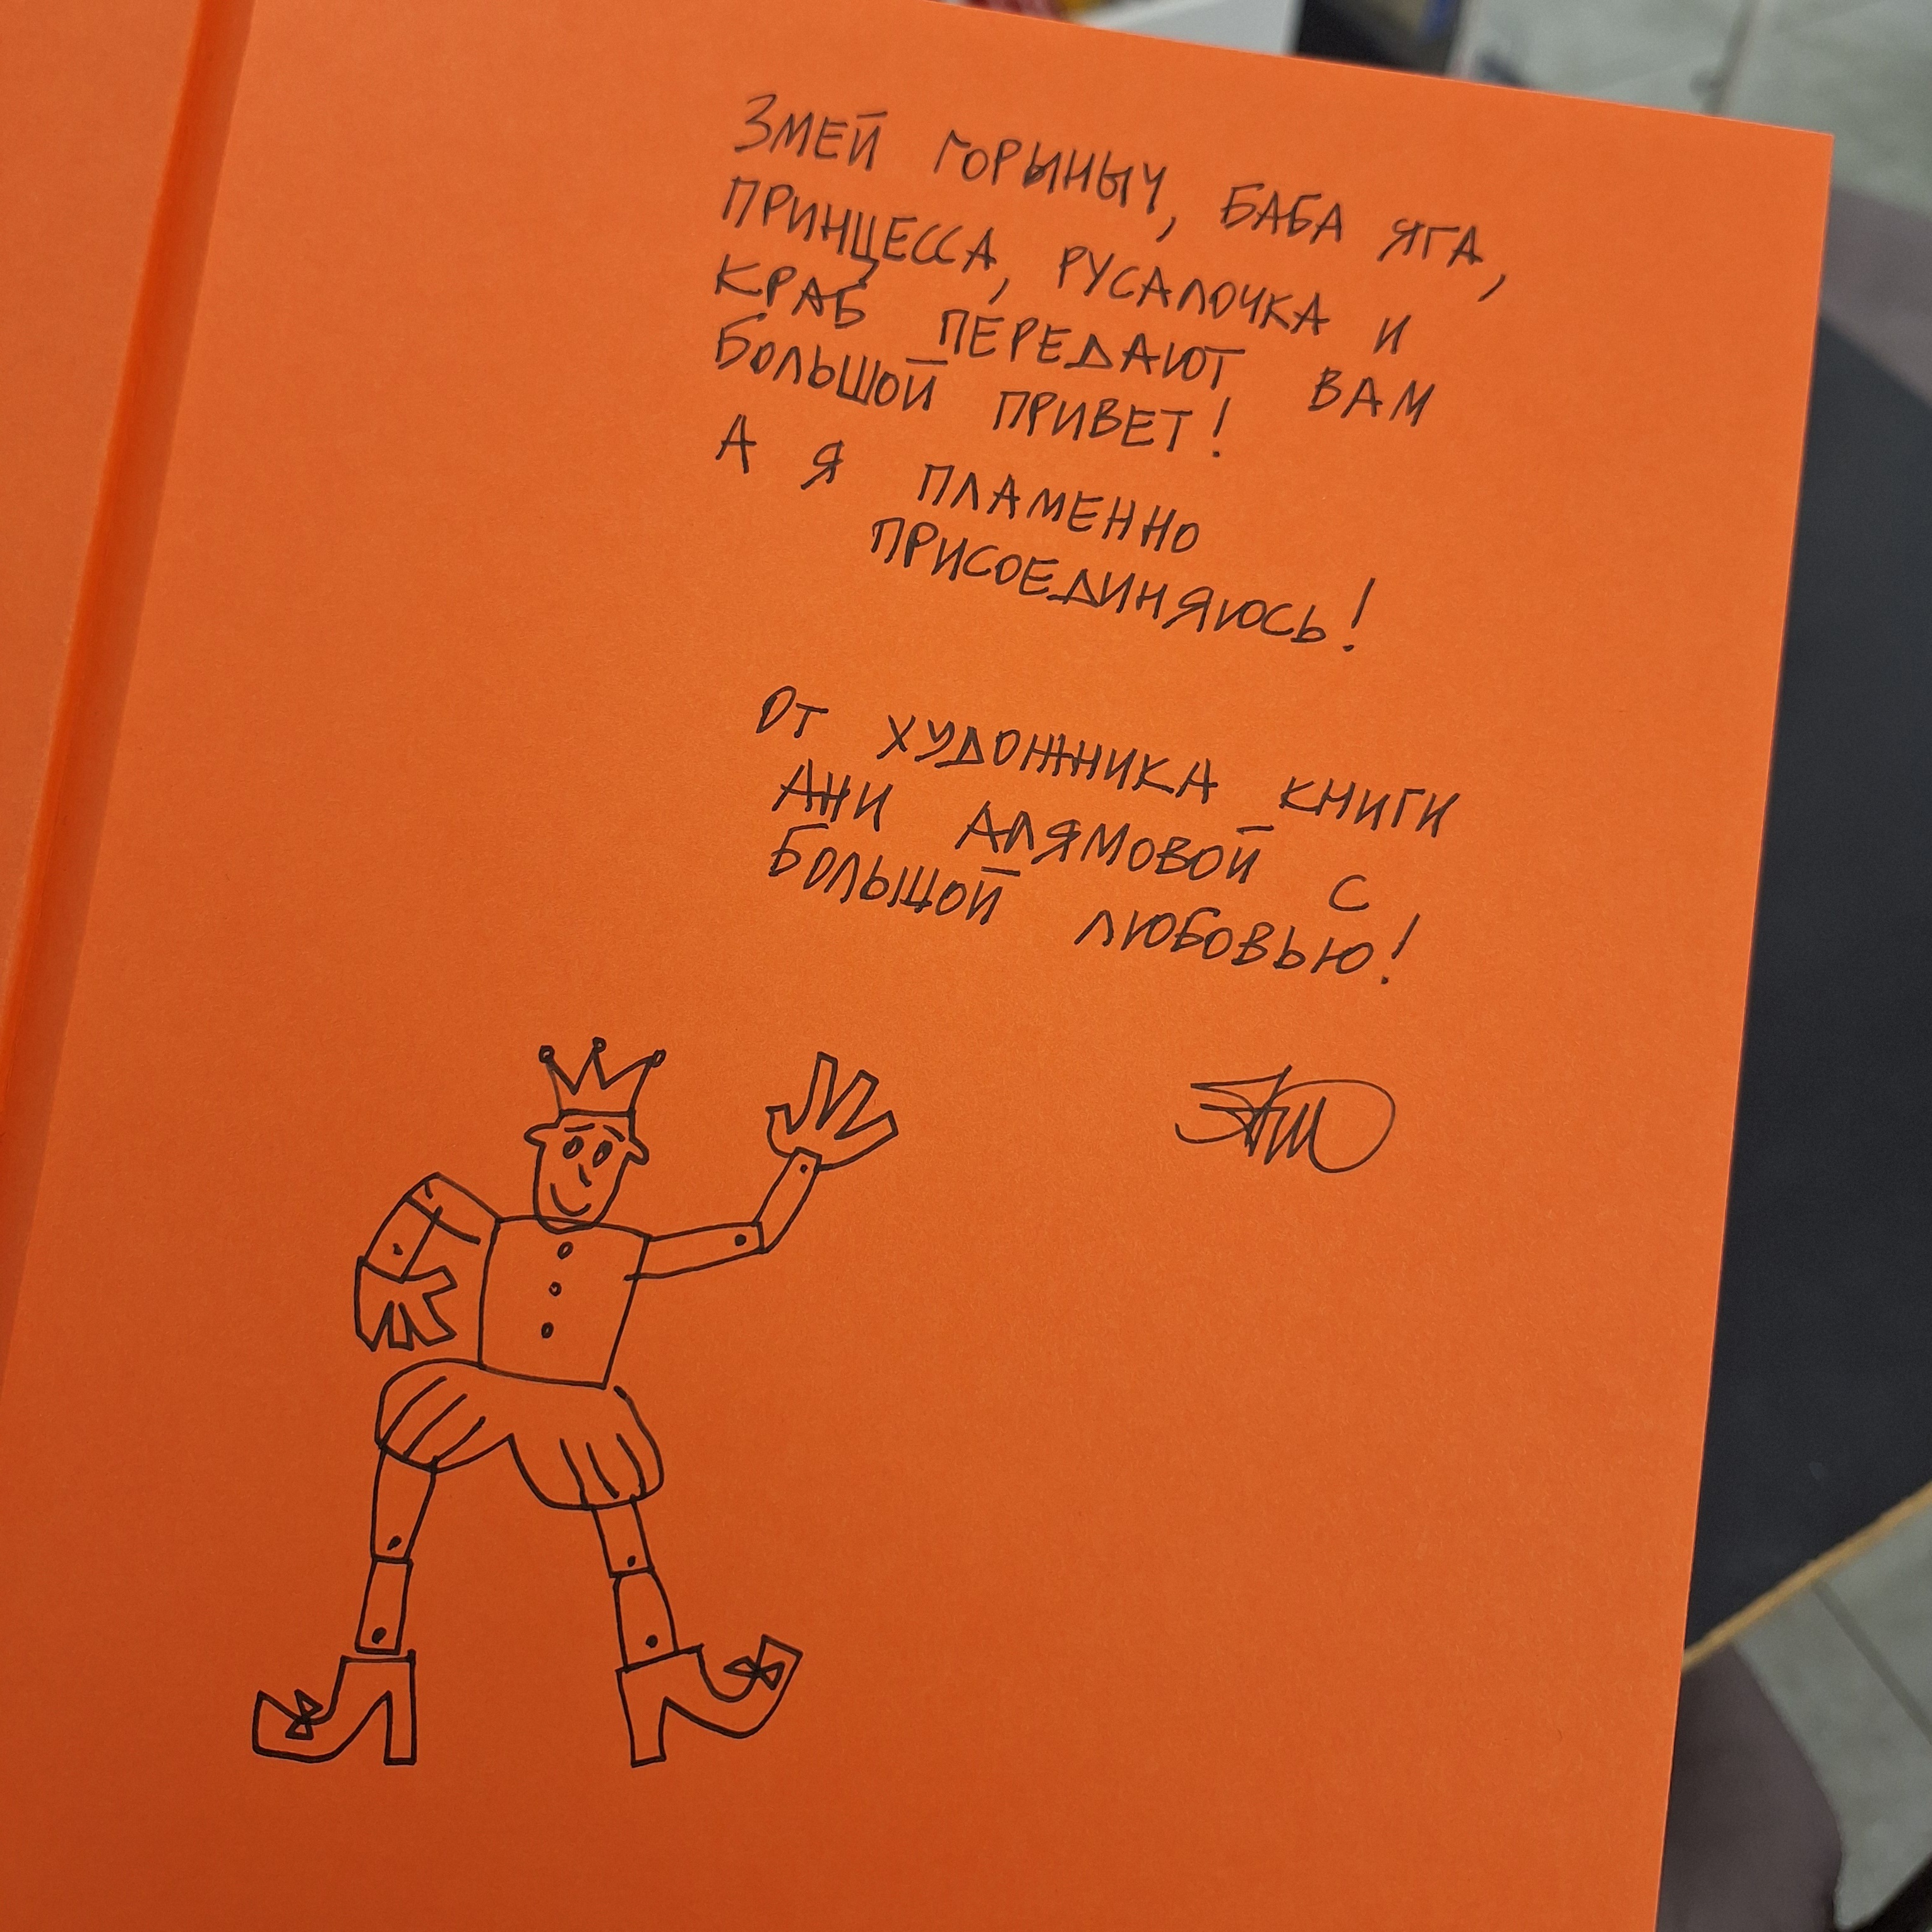 ЗМЕЙ ГОРЫНЫЧ, БАБА ЯГА,
ПРИНЦЕССА, РУСАЛОЧКА И
КРАБ ПЕРЕДАЮТ ВАМ
БОЛЬШОЙ ПРИВЕТ!
А Я ПЛАМЕННО
ПРИСОЕДИНЯЮСЬ!
ОТ ХУДОЖНИКА КНИГИ
АНИ АЛЯМОВОЙ С
БОЛЬШОЙ ЛЮБОВЬЮ!